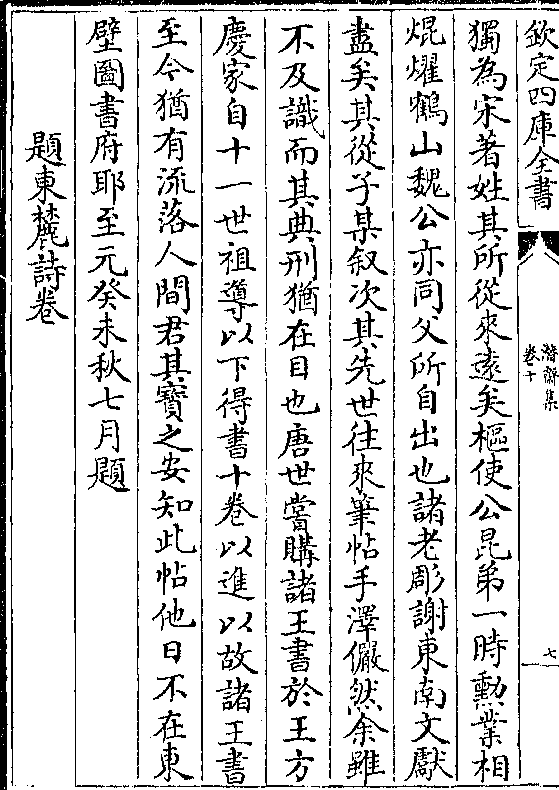 欽定四庫全書
潛齋集
卷十
七
獨為宋著姓其所從來遠矣樞使公昆弟一時勲業相
焜燿鶴山魏公亦同父所自出也諸老彫謝東南文獻
盡矣其從子某叙次其先世往來筆帖手澤儼然余雖
不及識而其典刑猶在目也唐世嘗購諸王書於王方
慶家自十一世祖導以下得書十卷以進以故諸王書
至今猶有流落人間君其寶之安知此帖他日不在東
壁圖書府耶至元癸未秋七月題
題東麓詩卷